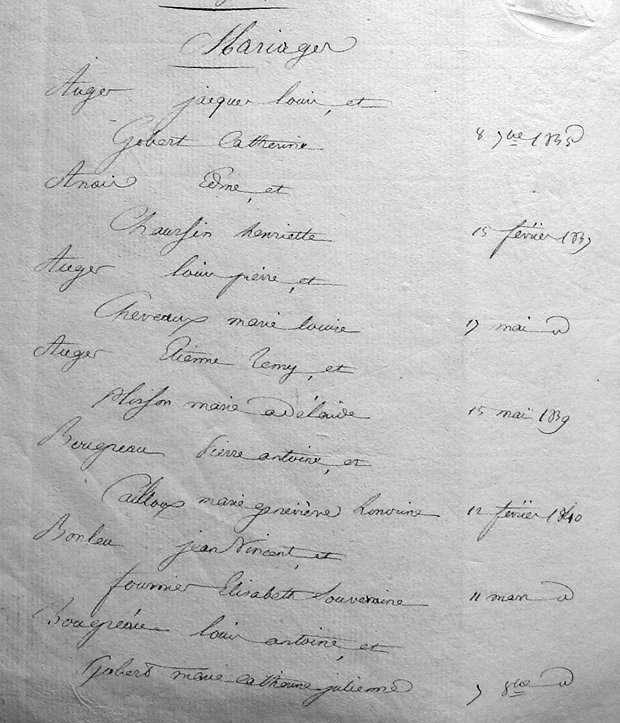 Mariages
Auger jacques louis, et
Gobert Catherine 8 7bre 1835
Anois Edme, et
Chaussin henriette 15 février 1837
Auger louis pierre, et
Cheveaux marie louise 17 mai d
Auger Etienne remy, et
Plisson marie adélaide 15 mai 1839
Bougreau Pierre antoine, et
Cailloux marie geneviève honorine 12 février 1840
Bonleu jean Vincent, et
fournier Elisabeth Souveraine 11 mars d
Bougréau louis antoine, et
Gobert marie catherine julienne 7 8bre d